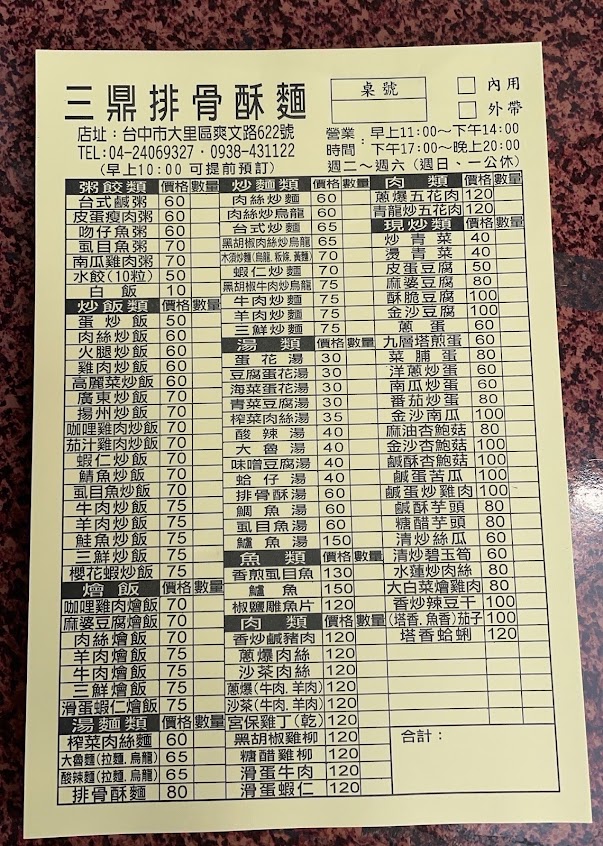 三鼎排骨酥麵
桌號
內用
外帶
店址：台中市大里區爽文路622號
TEL:04-24069327．0938-431122
(早上10:00 可提前預訂)
營業時間：早上11:00~下午14:00
下午17:00~晚上20:00
週二~週六（週日、一公休）
粥餃類 價格 數量
台式鹹粥 60
皮蛋瘦肉粥 60
吻仔魚粥 60
虱目魚粥 70
南瓜雞肉粥 70
水餃(10粒) 50
白飯 10
炒飯類 價格 數量
蛋炒飯 50
肉絲炒飯 60
火腿炒飯 60
雞肉炒飯 60
高麗菜炒飯 60
廣東炒飯 70
揚州炒飯 70
咖哩雞肉炒飯 70
茄汁雞肉炒飯 70
蝦仁炒飯 70
鯖魚炒飯 70
虱目魚炒飯 70
牛肉炒飯 75
羊肉炒飯 75
鮭魚炒飯 75
三鮮炒飯 75
櫻花蝦炒飯 75
燴飯 價格 數量
咖哩雞肉燴飯 70
麻婆豆腐燴飯 70
肉絲燴飯 70
羊肉燴飯 75
牛肉燴飯 75
三鮮燴飯 75
滑蛋蝦仁燴飯 75
湯麵類 價格 數量
榨菜肉絲麵 60
大魯麵(拉麵.烏龍) 65
酸辣麵(拉麵.烏龍) 65
排骨酥麵 80
炒麵類 價格 數量
肉絲炒麵 60
肉絲炒烏龍 60
台式炒麵 65
黑胡椒肉絲炒烏龍 65
木須炒麵(烏龍,粄條,黃麵) 70
蝦仁炒麵 70
黑胡椒牛肉炒烏龍 75
牛肉炒麵 75
羊肉炒麵 75
三鮮炒麵 75
湯類 價格 數量
蛋花湯 30
豆腐蛋花湯 30
海菜蛋花湯 30
青菜豆腐湯 30
榨菜肉絲湯 35
酸辣湯 40
大魯湯 40
味噌豆腐湯 40
蛤仔湯 40
排骨酥湯 60
鯛魚湯 60
虱目魚湯 60
鱸魚湯 150
魚類 價格 數量
香煎虱目魚 130
鱸魚 150
椒鹽雕魚片 120
肉類 價格 數量
香炒鹹豬肉 120
蔥爆肉絲 120
沙茶肉絲 120
蔥爆(牛肉.羊肉) 120
沙茶(牛肉.羊肉) 120
宮保雞丁(乾) 120
黑胡椒雞柳 120
糖醋雞柳 120
滑蛋牛肉 120
滑蛋蝦仁 120
肉類 價格 數量
蔥爆五花肉 120
青龍炒五花肉 120
現炒類 價格 數量
炒青菜 40
燙青菜 40
皮蛋豆腐 50
麻婆豆腐 80
酥脆豆腐 100
金沙豆腐 100
蔥蛋 60
九層塔煎蛋 60
菜脯蛋 80
洋蔥炒蛋 60
南瓜炒蛋 60
番茄炒蛋 80
金沙南瓜 100
麻油杏鮑菇 80
金沙杏鮑菇 100
鹹酥杏鮑菇 100
鹹蛋苦瓜 100
鹹蛋炒雞肉 100
鹹酥芋頭 80
糖醋芋頭 80
清炒絲瓜 60
清炒碧玉筍 60
水蓮炒肉絲 80
大白菜燴雞肉 80
香炒辣豆干 100
(塔香,魚香)茄子 100
塔香蛤蜊 120
合計：